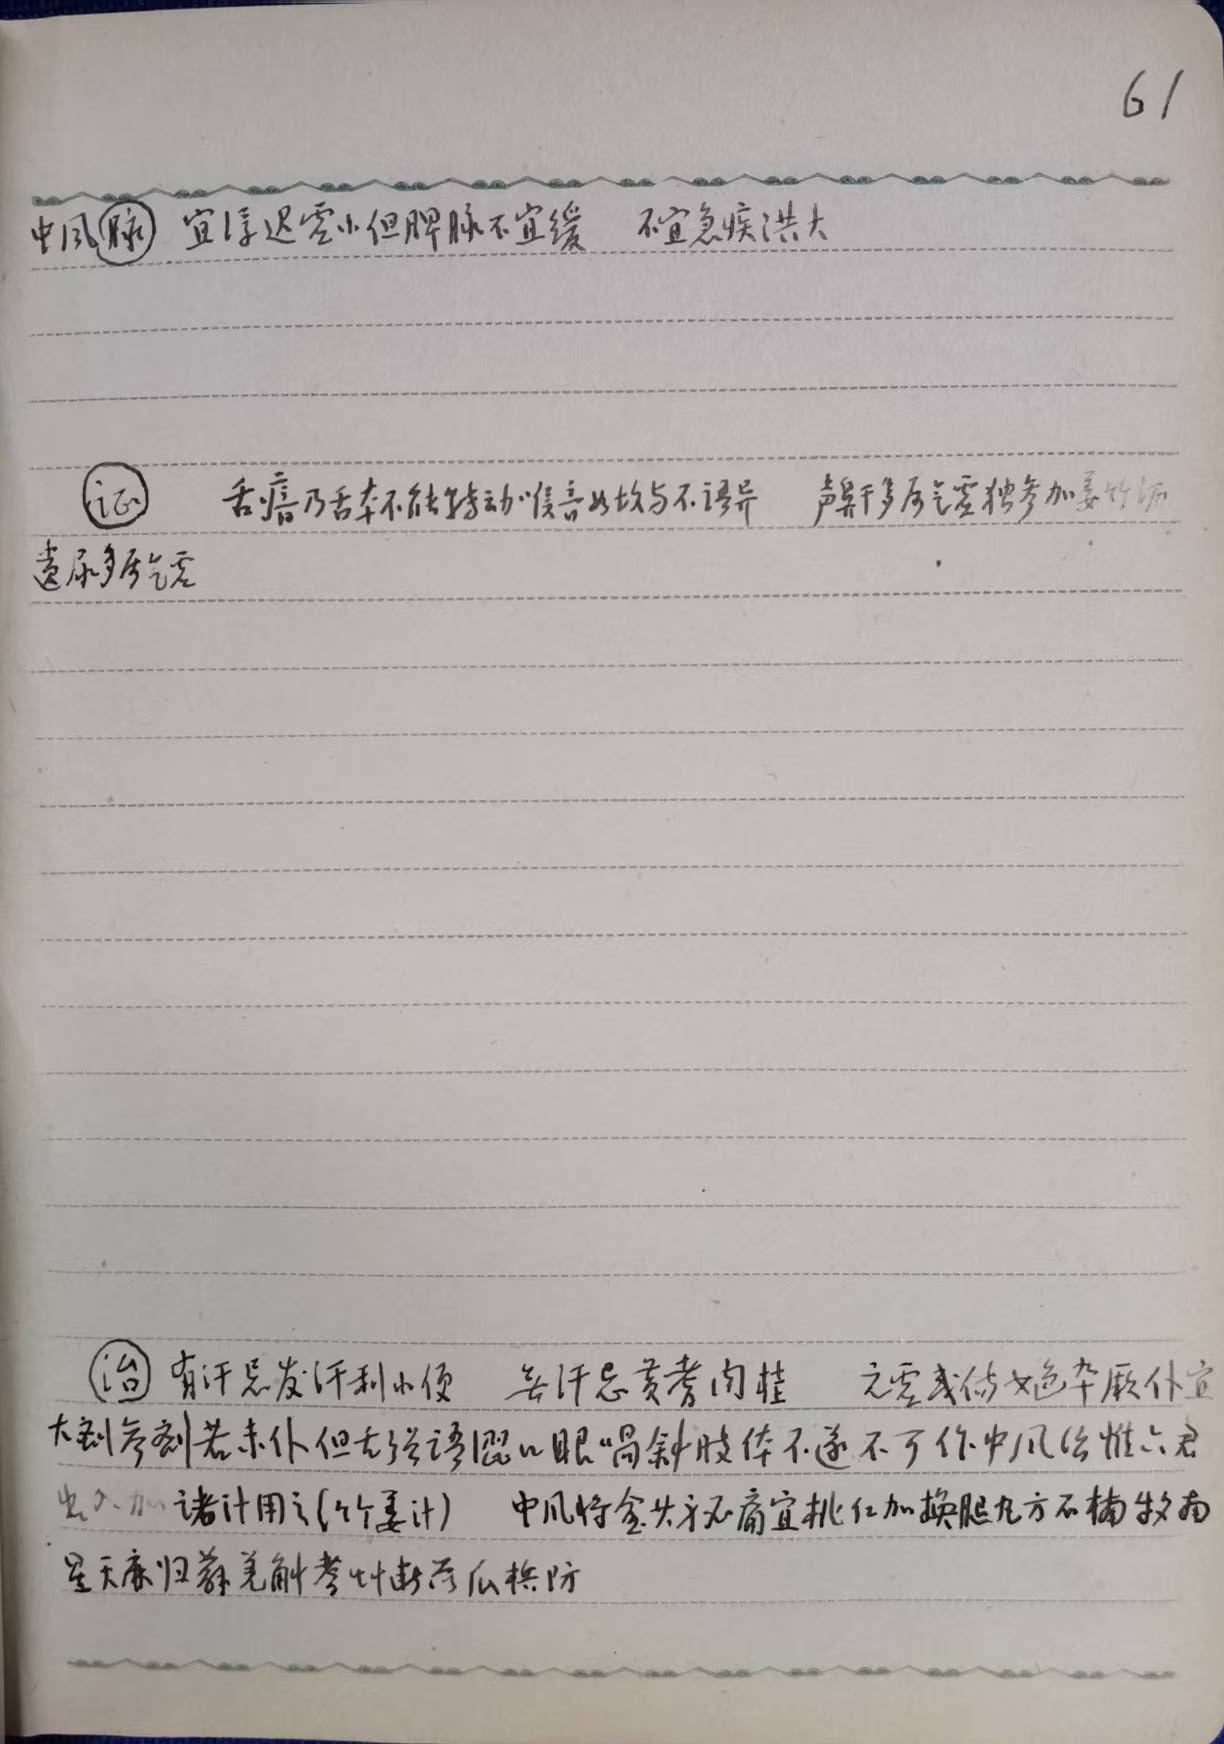 61
中风脉 宜浮迟虚小但脾脉不宜缓 不宜急疾洪大
证 舌瘖乃舌本不能转动 喉音如故与不语异 鼾多属气虚独参加姜竹沥
遗尿多属气虚
治 有汗忌发汗利小便 无汗忌黄芪肉桂 元虚或伤女色卒厥仆宜
大剂参 若未仆但 强语涩口眼喎斜肢体不遂不可作中风治惟六君
出入加诸汁用之(竹姜汁) 中风将 必痛宜桃仁加换腿丸方石楠 南
星天麻归 羌 瓜 防